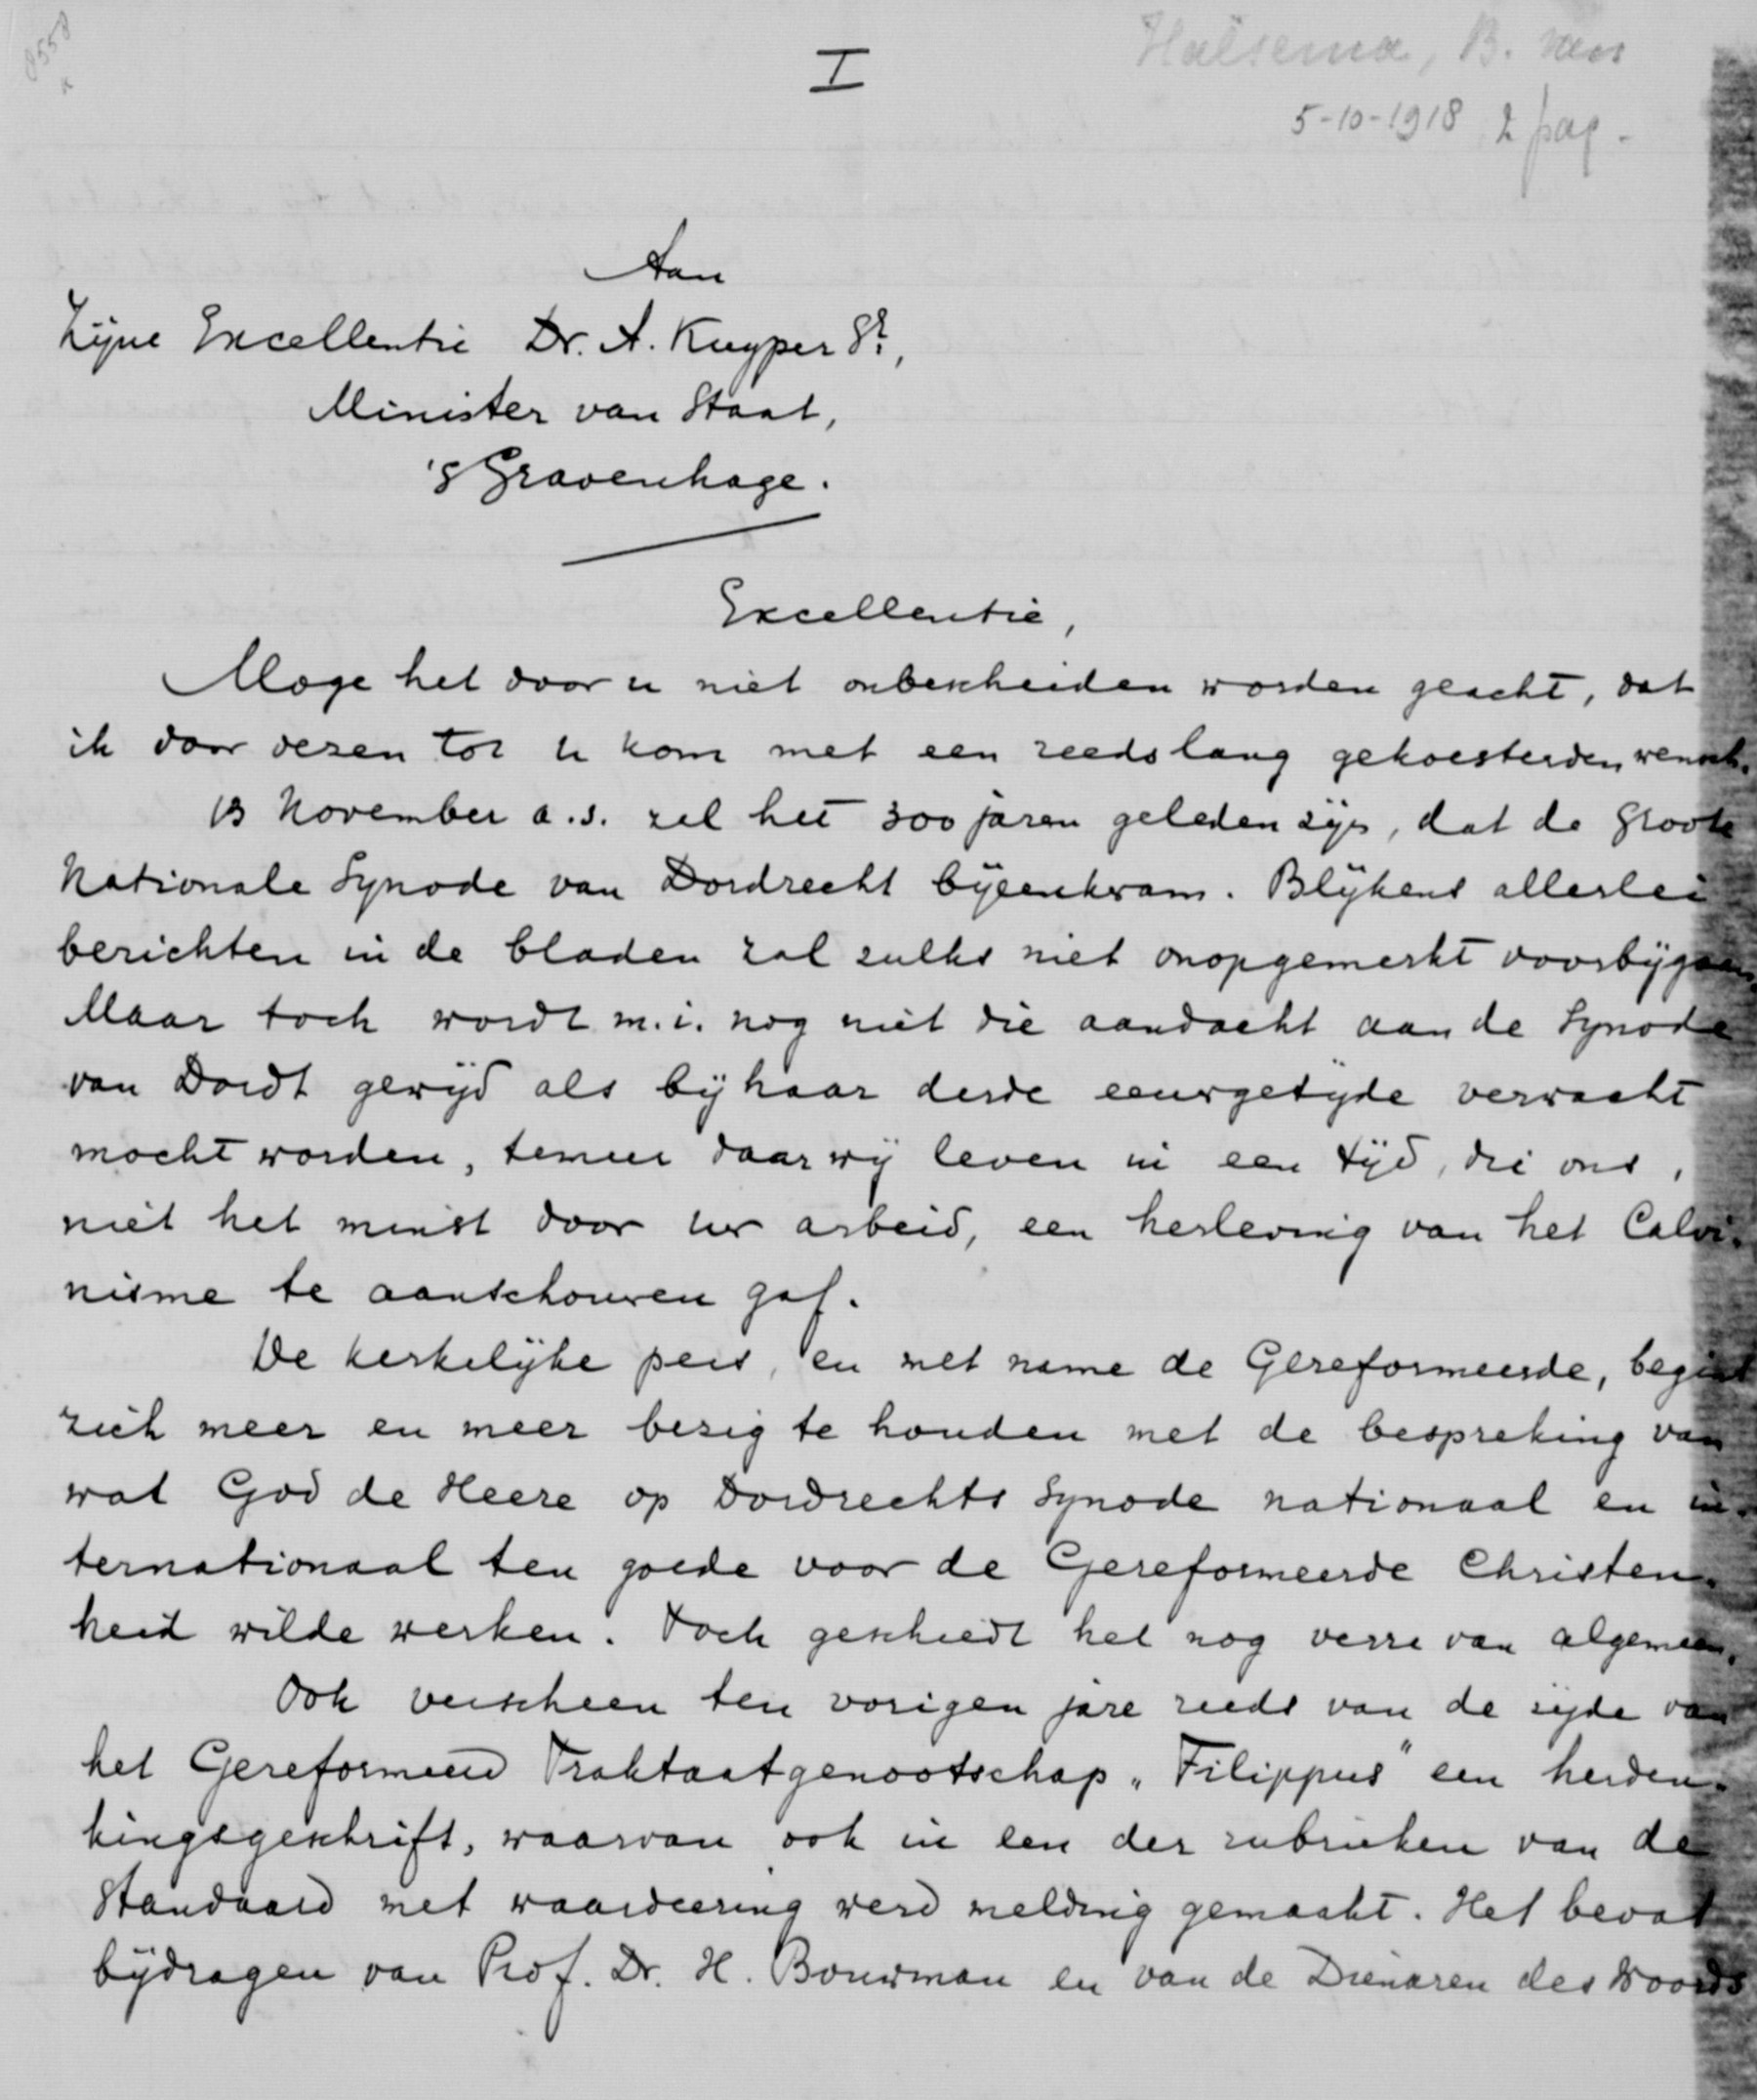 8558
I
Halsema, B. van
5-10-1918 2 pag.
Aan
Zijne Excellentie Dr. A. Kuyper Sr.,
Minister van Staat,
's Gravenhage.
Excellentie,
Moge het door u niet onbescheiden worden geacht, dat
ik door dezen tot u kom met een reeds lang gekoesterden wensch.
13 November a.s. zal het 300 jaren geleden zijn, dat de Groote
Nationale Synode van Dordrecht bijeenkwam. Blijkens allerlei
berichten in de bladen zal zulks niet onopgemerkt voorbijgaan.
Maar toch wordt m.i. nog niet die aandacht aan de Synode
van Dordt gewijd als bij haar derde eeuwgetijde verwacht
mocht worden, temeer daar wij leven in een tijd, die ons,
niet het minst door uw arbeid, een herleving van het Calvi-
nisme te aanschouwen gaf.
De kerkelijke pers, en met name de Gereformeerde, begint
zich meer en meer bezig te houden met de bespreking van
wat God de Heere op Dordrechts Synode nationaal en in-
ternationaal ten goede voor de Gereformeerde Christen-
heid wilde werken. Toch geschiedt het nog verre van algemeen.
Ook verscheen ten vorigen jare reeds van de zijde van
het Gereformeerd Traktaatgenootschap „Filippus" een herden-
kingsgeschrift, waarvan ook in een der rubrieken van de
Standaard met waardeering werd melding gemaakt. Het bevat
bijdragen van Prof. Dr. H. Bouwman en van de Dienaren des Woords